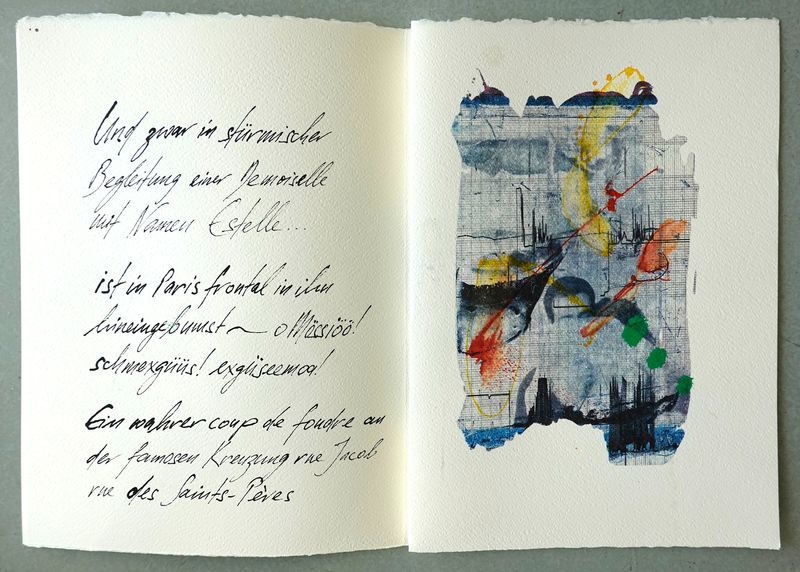 Und zwar in stürmischer
Begleitung einer Demoiselle
mit Namen Estelle...
ist in Paris frontal in ihn
hineingebumst ~ o Mëssiöö!
schmexgüüs! exgüseemoa!
Ein wahrer coup de foudre an
der famosen Kreuzung rue Jacob
rue des Saints-Pères